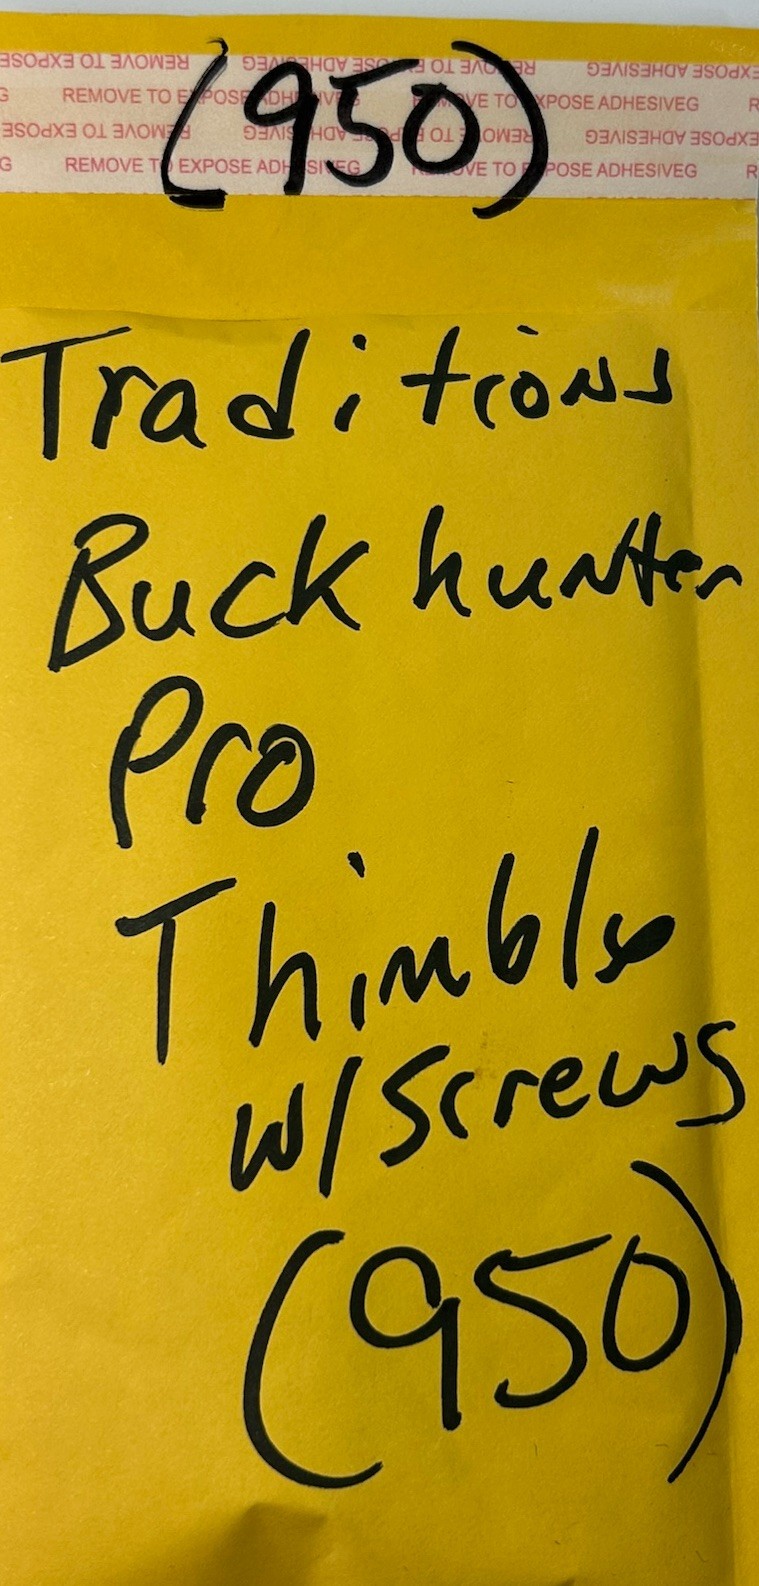 (950)
REMOVE TO EXPOSE ADHESIVEG REMOVE TO EXPOSE ADHESIVEG
REMOVE TO EXPOSE ADHESIVEG REMOVE TO EXPOSE ADHESIVEG
REMOVE TO EXPOSE ADHESIVEG REMOVE TO EXPOSE ADHESIVEG
REMOVE TO EXPOSE ADHESIVEG REMOVE TO EXPOSE ADHESIVEG
Traditions
Buckhunter
Pro
Thimble
w/screws
(950)